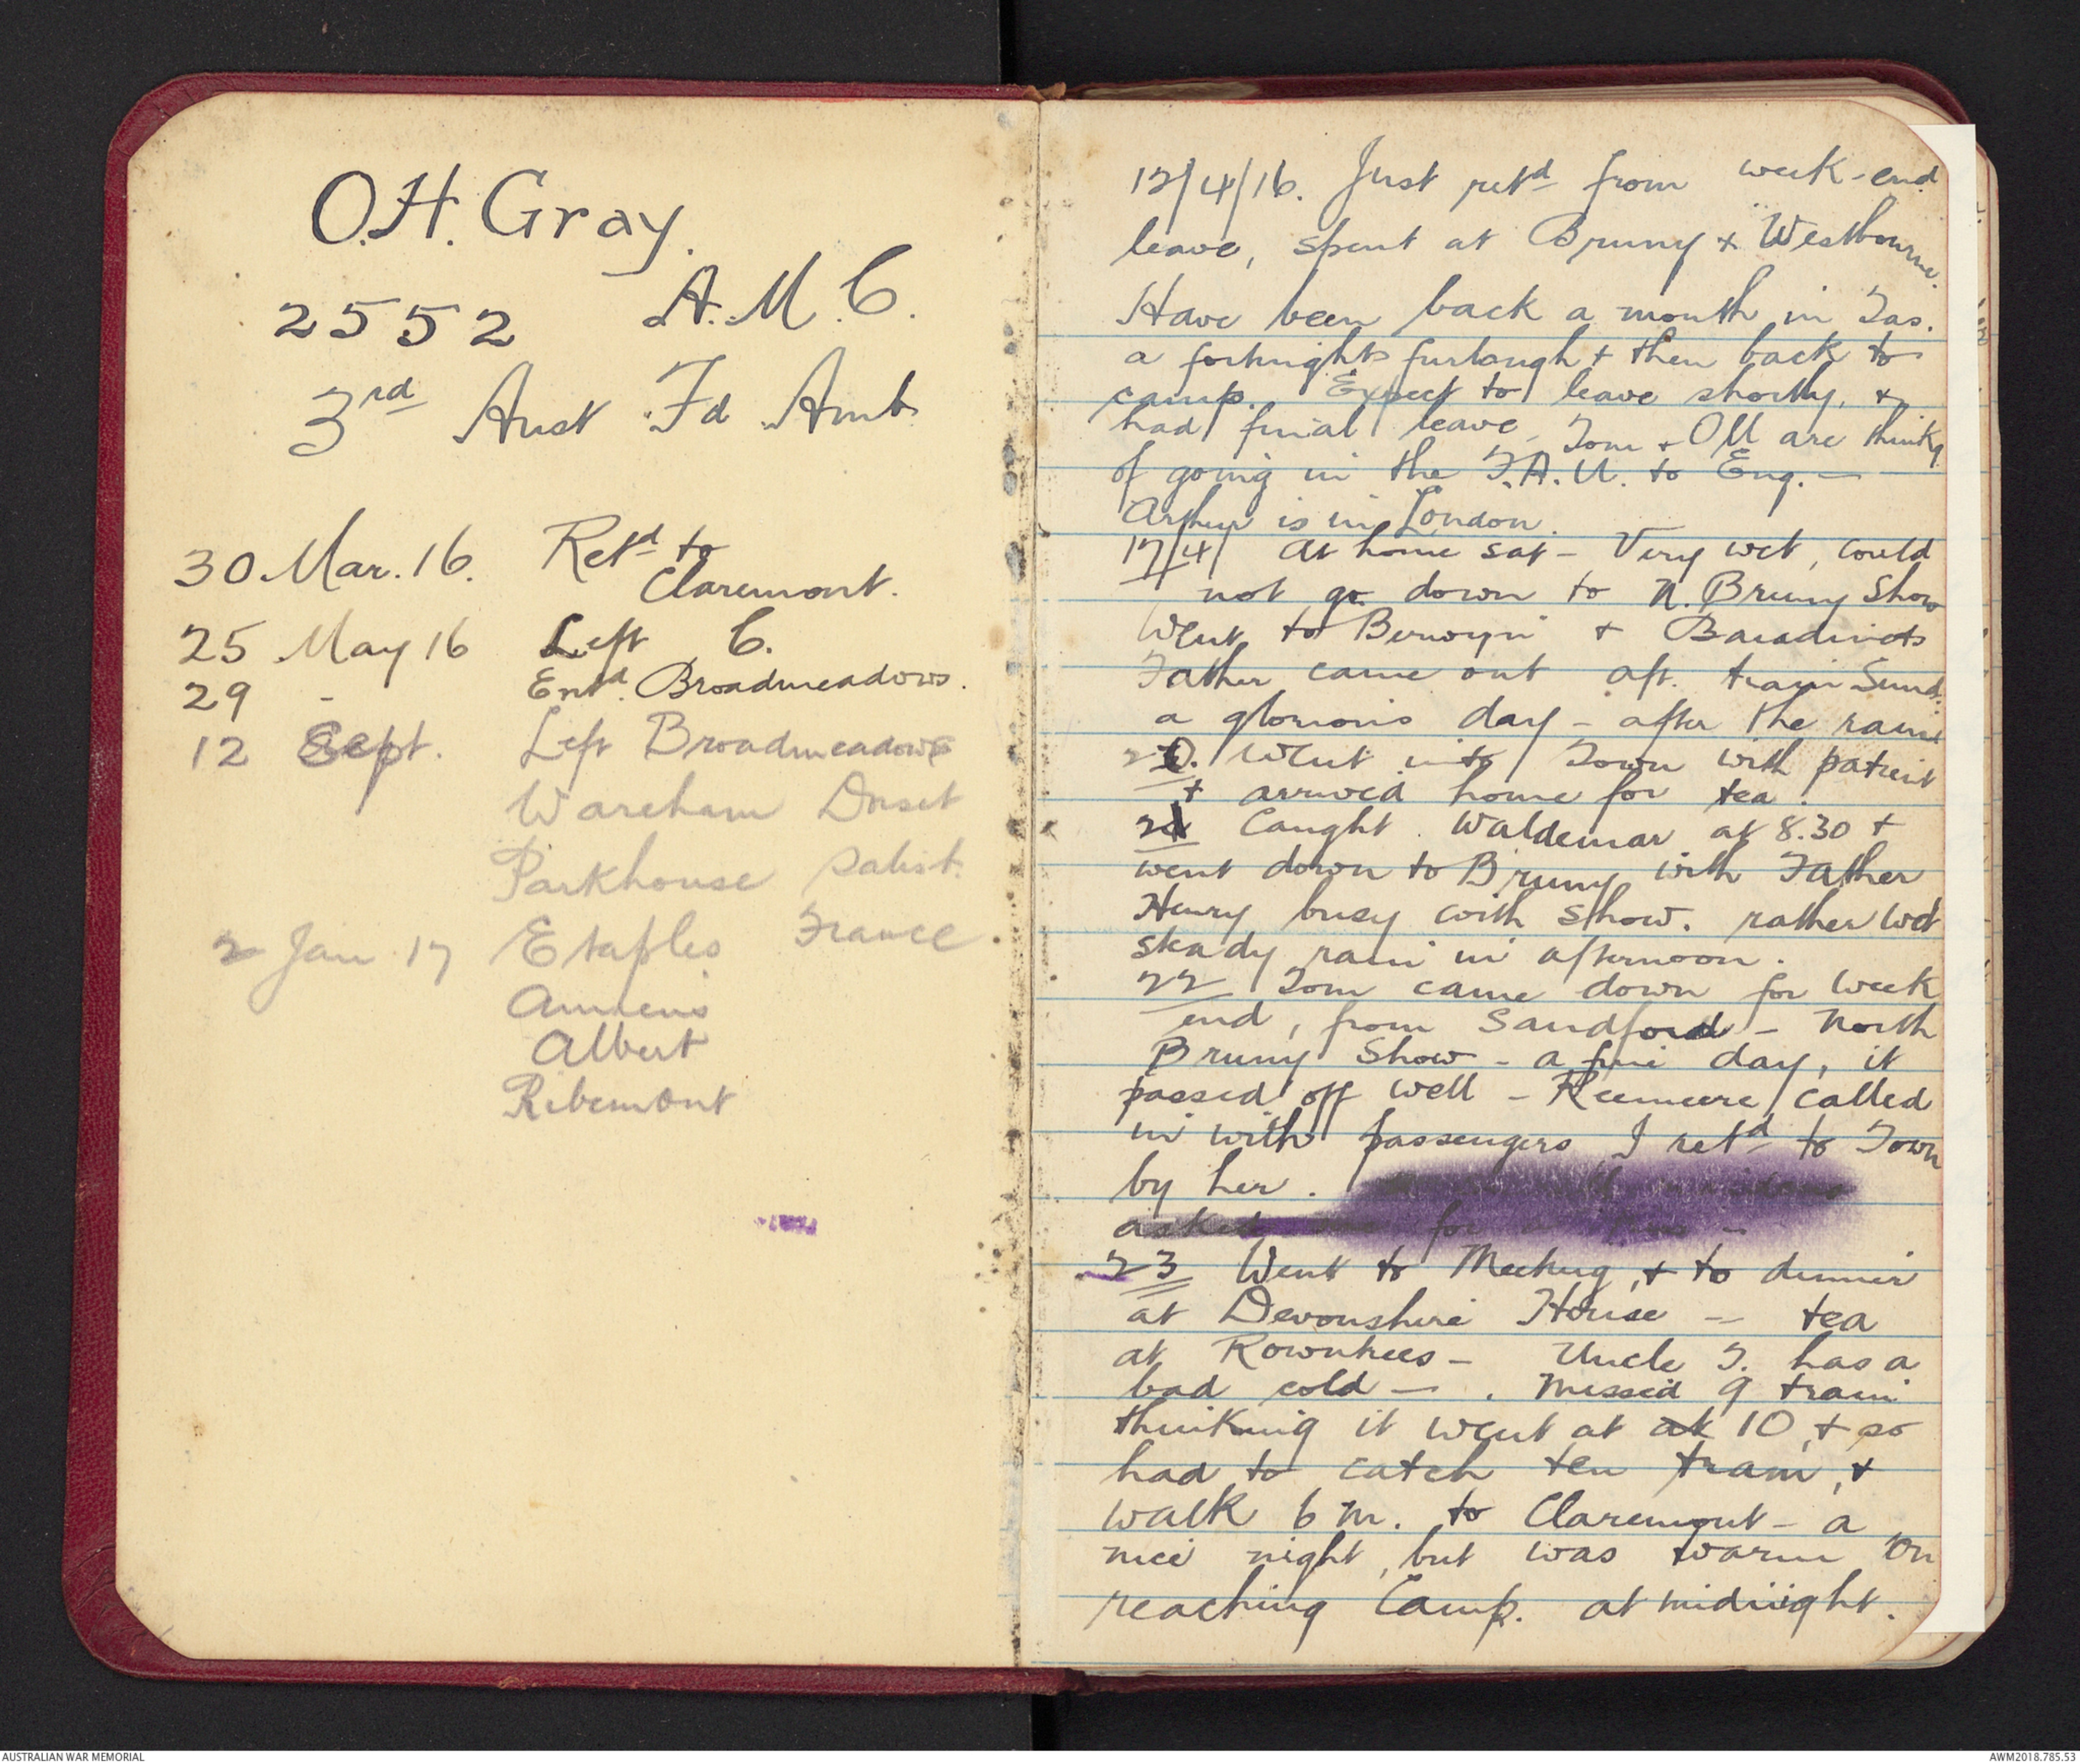 O.H. Gray.
2552 A.M.C.
3rd Aust Fd Amb
30 Mar. 16. Retd to
Claremont.
25 May 16 Left C.
29 - Entd. Broadmeadows.
12 Sept. Left Broadmeadows
Wareham Dorset
Parkhouse Salisb.
2 Jan 17 Etaples France.
Amiens
Albert
Ribemont
12/4/16. Just retd from week-end
leave, spent at Bruny + Westbourne.
Have been back a month in Tas.
a fortnights furlough + then back to
camp. Expect to leave shortly, +
had final leave. Tom + OM are thinkg
of going in the F.A.U. to Eng. —
Arthur is in London.
17/4/ At home Sat - Very wet, could
not go down to N. Bruny Show
Went to Berwyn +
Father came out aft. train Sund.
a glorious day - after the rain
20. Went into Town with patient
+ arrived home for tea.
21 Caught Waldemar at 8.30 +
went down to Bruny with Father
Henry busy with Show. rather wet
steady rain in afternoon.
22 Tom came down for week
end, from Sandford - North
Bruny Show - a fine day, it
passed off well - Reemere called
in with passengers I retd to Town
by her.
asked for a
23 Went to Meeting, + to dinner
at Devonshire House - tea
at Rowntrees - Uncle T. has a
bad cold - . Missed 9 train
thinking it went at at 10, + so
had to catch ten tram, +
walk 6 m. to Claremont - a
nice night, but was warm on
reaching Camp. at midnight.
AUSTRALIAN WAR MEMORIAL
AWM2018.785.53